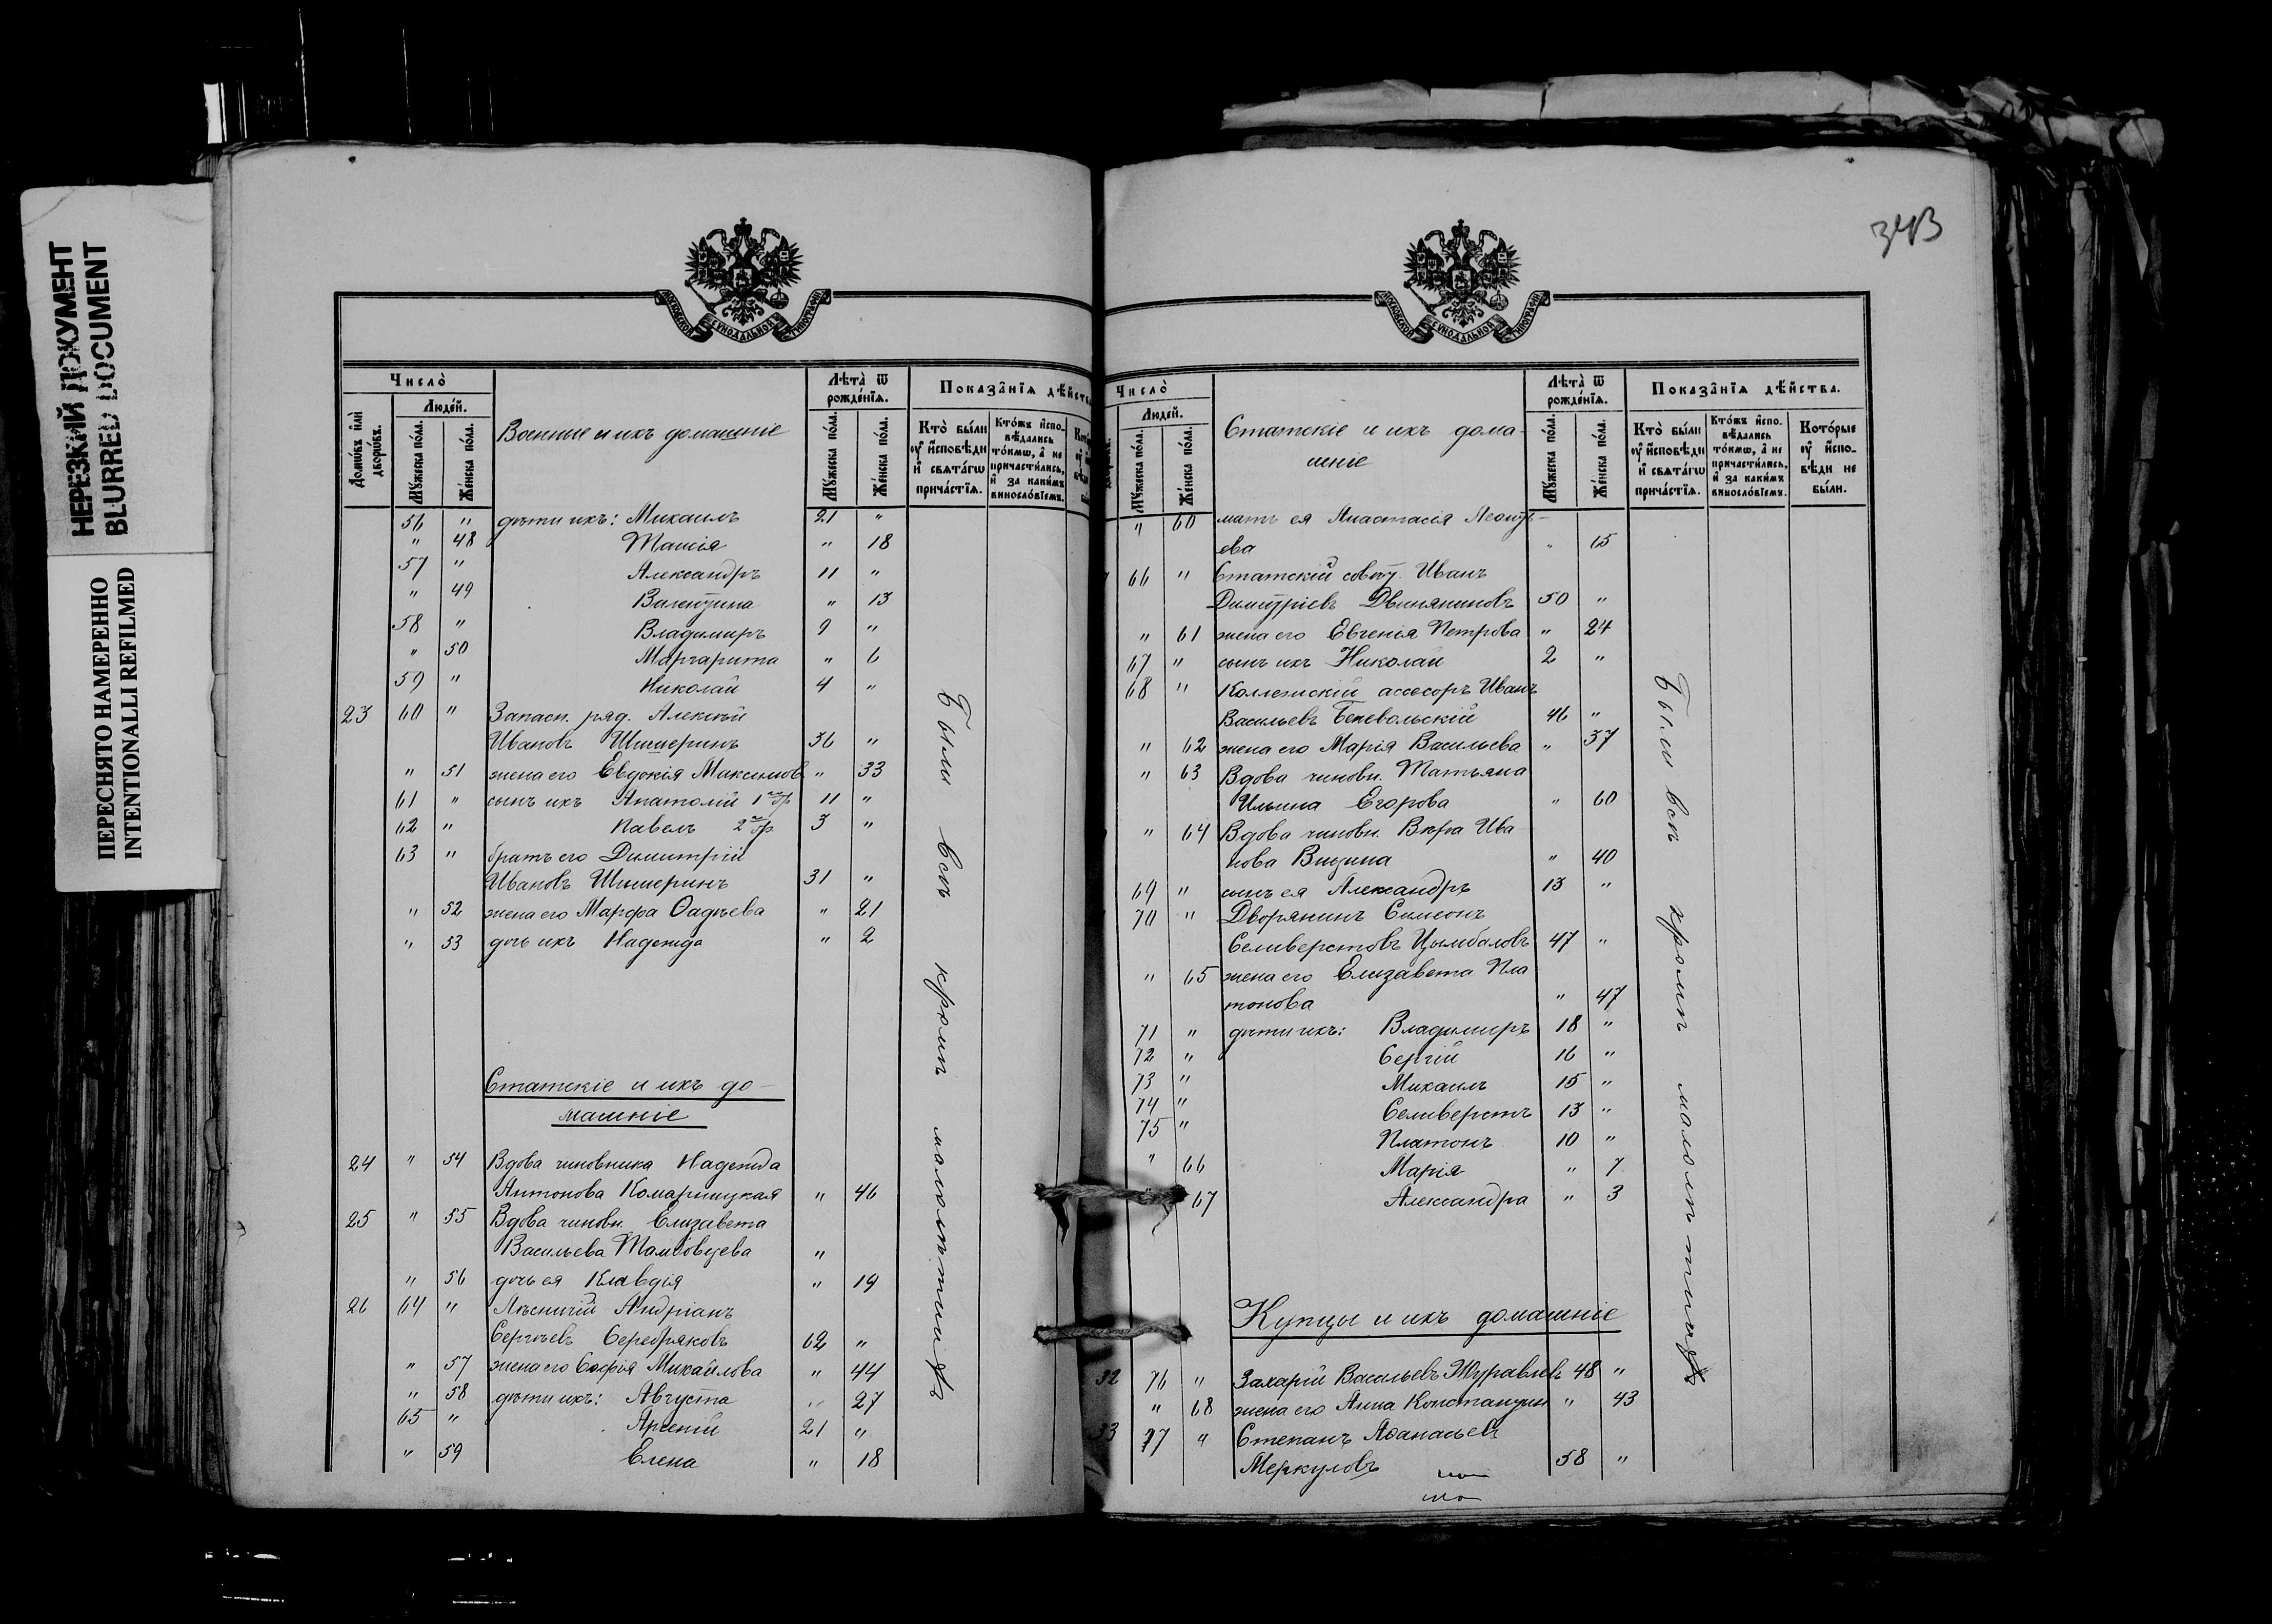 НЕРЕЗКИЙ ДОКУМЕНТ
BLURRED DOCUMENT
ПЕРЕСНЯТО НАМЕРЕННО
INTENTIONALLI REFILMED
МОСКОВСКОЙ СѴНОДАЛЬНОЙ ТИПОГРАФІИ
Число̀
Люде́й.
Домѡ́въ и҆лѝ дворѡ́въ.
Мꙋ́жеска по́ла.
Же́нска по́ла.
Военные и ихъ домашніе
Лѣта̀ ѿ рожде́нїѧ.
Мꙋ́жеска по́ла.
Же́нска по́ла.
Показа̑нїѧ дѣ́йства
Кто̀ бы́ли оу҆ и҆сповѣди и҆ свѧта́гѡ прича́стїѧ.
Кто́жъ и҆спо-вѣдались то́кмѡ, а҆ не причасти́лись, и҆ за каки́мъ винословїемъ.
56 " дѣти ихъ: Михаилъ 21 "
" 48 Таисія " 18
57 " Александръ 11 "
" 49 Валентина " 13
58 " Владимиръ 9 "
" 50 Маргарита " 6
59 " Николай 4 "
23 60 " Запасн. ряд. Алексѣй
Ивановъ Шишеринъ 36 "
" 51 жена его Евдокія Максимов " 33
61 " сынъ ихъ Анатолій 1го бр 11 "
62 " Павелъ 2го бр. 3 "
63 " братъ его Димитрій
Ивановъ Шишеринъ 31 "
" 52 жена его Марфа Фадѣева " 21
" 53 дочь ихъ Надежда " 2
Статскіе и ихъ до-
машніе
24 " 54 Вдова чиновника Надежда
Антонова Комарницкая " 46
25 " 55 Вдова чиновн. Елизавета
Васильева "
" 56 дочь ея Клавдія " 19
26 64 " Лѣсничій Андріанъ
Сергѣевъ Серебряковъ 62 "
" 57 жена его Софія Михайлова " 44
" 58 дѣти ихъ: Августа " 27
65 " Арсеній 21 "
" 59 Елена " 18
Были всѣ кромѣ малолѣтнихъ
343
МОСКОВСКОЙ СѴНОДАЛЬНОЙ ТИПОГРАФІИ
Число̀
Люде́й.
Мꙋ́жеска по́ла.
Же́нска по́ла.
Статскіе и ихъ дома-
шніе
Лѣта̀ ѿ рожде́нїѧ.
Мꙋ́жеска по́ла.
Же́нска по́ла.
Показа̑нїѧ дѣ́йства.
Кто̀ бы́ли оу҆ и҆сповѣди и҆ свѧта́гѡ прича́стїѧ.
Кто́жъ и҆спо-вѣдались то́кмѡ, а҆ не причасти́лись, и҆ за каки́мъ винословїемъ.
Кото́рые оу҆ и҆спо-вѣди не бы́ли.
" 60 мать ея Анастасія Леонть-
ева " 65
66 " Статскій совѣт. Иванъ
Димитріевъ Двиняниновъ 50 "
" 61 жена его Евгенія Петрова " 24
67 " сынъ ихъ Николай 2 "
68 " Коллежскій ассесоръ Иванъ
Васильевъ Беневольскій 46 "
" 62 жена его Марія Васильева " 37
" 63 Вдова чиновн. Татьяна
Ильина Егорова " 60
" 64 Вдова чиновн. Вѣра Ива
нова " 40
69 " сынъ ея Александръ 13 "
70 " Дворянинъ Симеонъ
Селиверстовъ Цымбаловъ 47 "
" 65 жена его Елизавета Пла
тонова " 47
71 " дѣти ихъ: Владимиръ 18 "
72 " Сергій 16 "
73 " Михаилъ 15 "
74 " Селиверстъ 13 "
75 " Платонъ 10 "
" 66 Марія " 7
" 67 Александра " 3
Купцы и ихъ домашніе
32 76 " Захарій Васильевъ Журавлевъ 48 "
" 68 жена его Анна Константин " 43
33 77 " Степанъ Аѳанасьев
Меркуловъ 58 "
Были всѣ кромѣ малолѣтнихъ